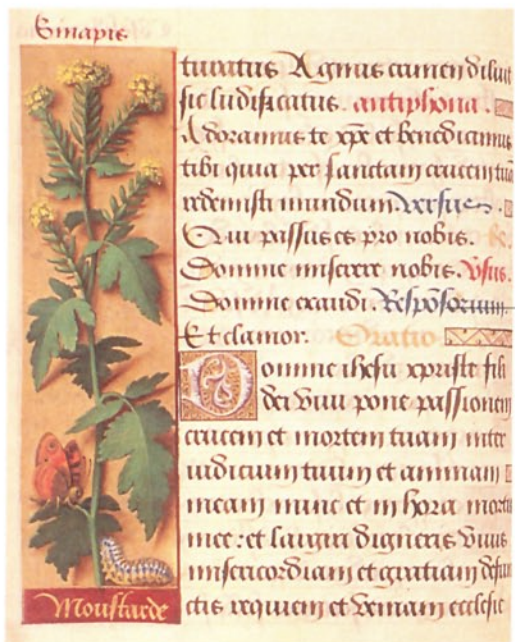 Sinapis
turatus Agnus crimen diluit
sic ludificatus. antiphona.
Adoramus te xpe et benedicimus
tibi quia per sanctam crucem tuã
redemisti mundum. versus.
Qui passus es pro nobis. R.
Domine miserere nobis. Vsus.
Domine exaudi. Respõsorium.
Et clamor. Oratio
Domine ihesu xpriste fili
dei viui pone passionem
crucem et mortem tuam inter
iudicium tuum et animam
meam nunc et in hora mortis
mee: et largiri digneris viuis
misericordiam et gratiam defun
ctis requiem et veniam ecclesie
Moustarde